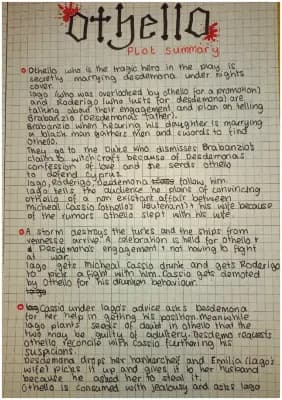 othello
Plot summary
Othello, who is the tragic hero in the play, is
secretly marrying desdemona under nights
cover.
Iago (who was overlooked by othello for a promotion)
and Roderigo (who lusts for desdemona) are
talking about their engagement and plan on telling
Brabanzio (Desdemona's father).
Brabanzio when hearing his daughter is marrying
a black man gathers men and swords to find
Othello.
They go to the Duke who dismisses Brabanzio's
claims of witchcraft because of Desdemona's
confession of love and sends othello
to defend cyprus.
Iago, Roderigo, Desdemona follow him
Iago tells the audience he plans of convincing
othello of a non existant affair between
micheal cassio (othello's lieutenant) + his wife because
of the rumours othello slept with his wife.
A storm destroys the turks and the ships from
vennesse arrive. A celebration is held for othello +
Desdemona's engagement + not having to fight
at war.
Iago gets micheal Cassio drunk and gets Roderigo
to pick a fight with him. Cassio gets demoted
by Othello for his drunken behaviour.
Cassio under Iago's advice asks desdemona
for her help in getting his position. meanwhile
Iago plants seeds of doubt in othello that the
two may be guilty of adultery. Desdema requests
othello reconcile with cassio furthering his
suspicions.
Desdemona drops her hankerchief and Emilia (Iago's
wife) picks it up and gives it to her husband
because he asked her to steal it.
Othello is consumed with jealousy and asks Iago